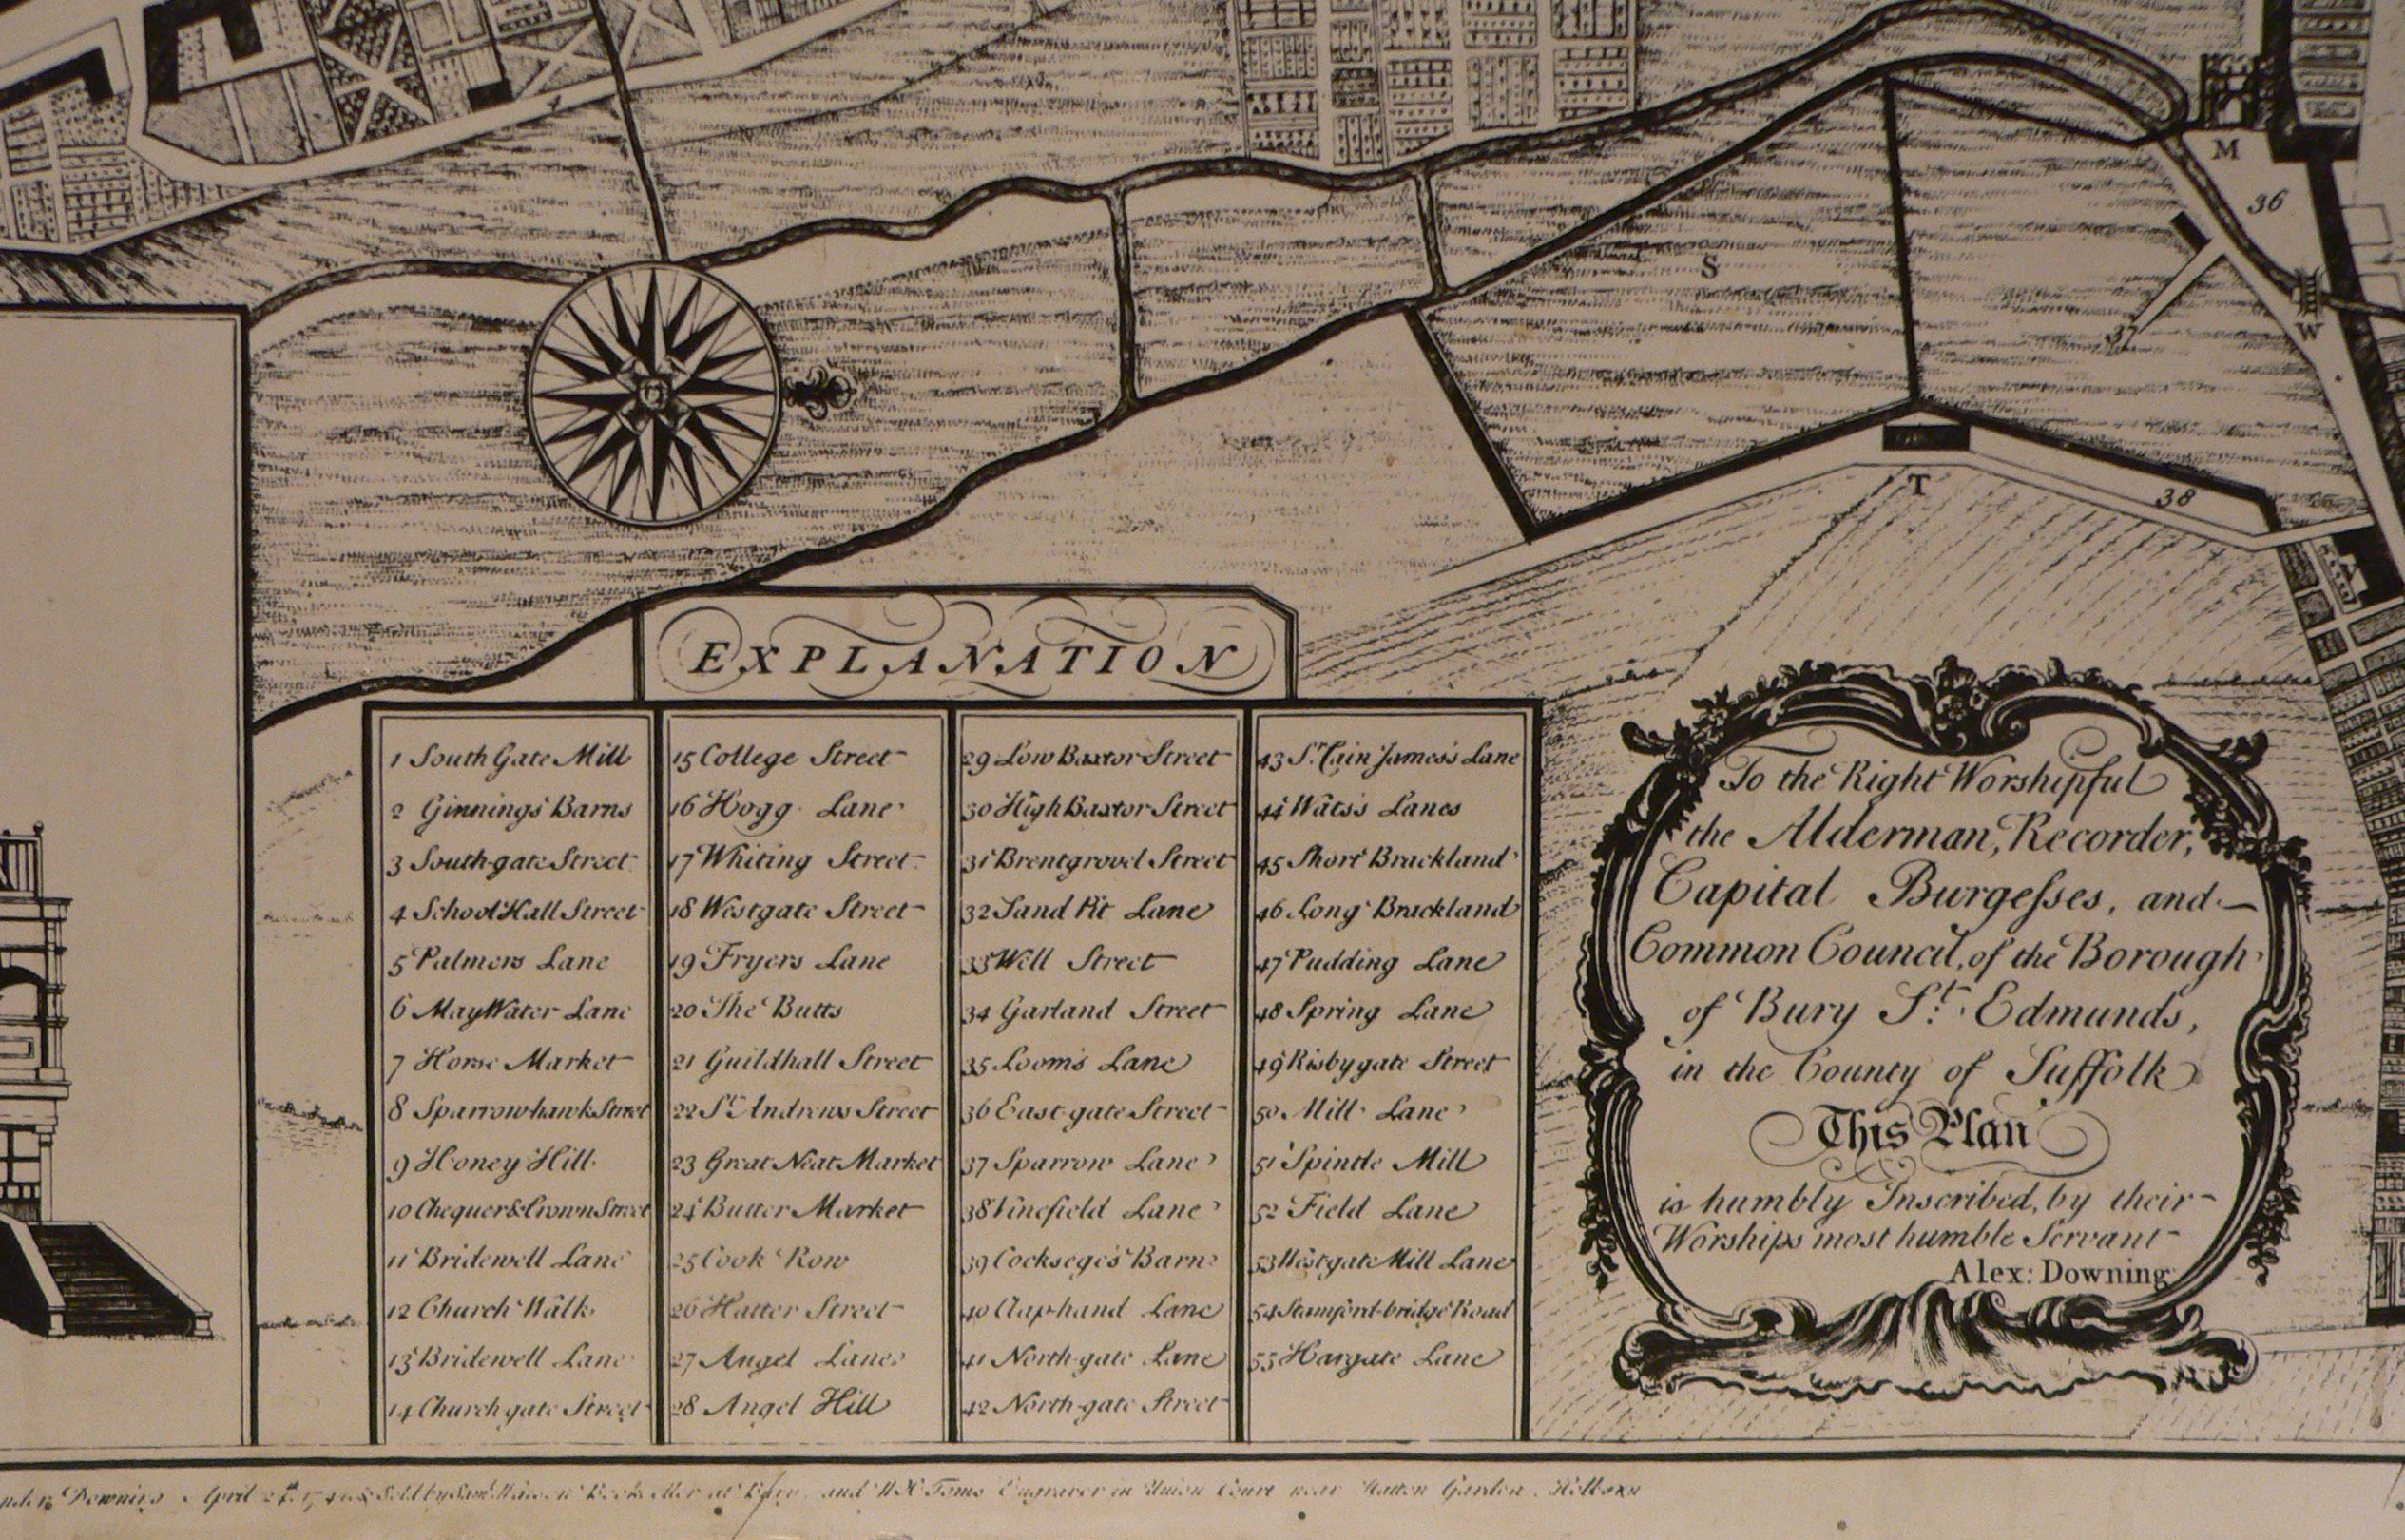 M
36
S
37
W
T
38
EXPLANATION
1 South Gate Mill
2 Ginnings Barns
3 South-gate Street
4 School Hall Street
5 Palmers Lane
6 May Water Lane
7 Horse Market
8 Sparrowhawk Street
9 Honey Hill
10 Chequer & Crown Street
11 Bridewell Lane
12 Church Walk
13 Bridewell Lane
14 Church gate Street
15 College Street
16 Hogg Lane
17 Whiting Street
18 Westgate Street
19 Fryers Lane
20 The Butts
21 Guildhall Street
22 St. Andrews Street
23 Great Neat Market
24 Butter Market
25 Cook Row
26 Hatter Street
27 Angel Lane
28 Angel Hill
29 Low Baxtor Street
30 High Baxtor Street
31 Brentgrovel Street
32 Sand Pit Lane
33 Well Street
34 Garland Street
35 Looms Lane
36 East-gate Street
37 Sparrow Lane
38 Vinefield Lane
39 Cocksege's Barn
40 Claphand Lane
41 North-gate Lane
42 North-gate Street
43 Sr. Cain James's Lane
44 Wats's Lanes
45 Short Brackland
46 Long Brackland
47 Pudding Lane
48 Spring Lane
49 Risbygate Street
50 Mill Lane
51 Spintle Mill
52 Field Lane
53 Westgate Mill Lane
54 Stamford-bridge Road
55 Hargate Lane
To the Right Worshipful
the Alderman, Recorder,
Capital Burgesses, and
Common Council, of the Borough
of Bury St. Edmunds,
in the County of Suffolk
This Plan
is humbly Inscribed, by their
Worships most humble Servant
Alex: Downing
Downing April Sold by Saml. at Bury, and W H Toms Engraver in Union Court near Hatton Garden, Holborn